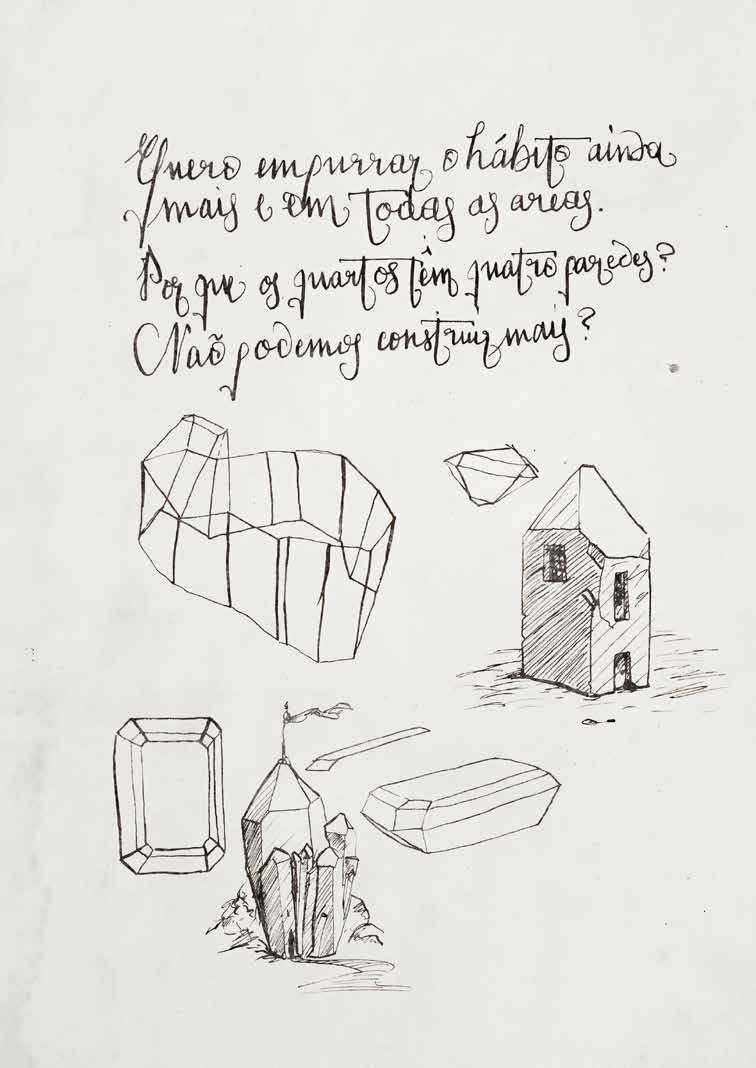 Quero empurrar o hábito ainda
mais e em todas as areas.
Por que os quartos têm quatro paredes?
Naõ podemos construir mais?